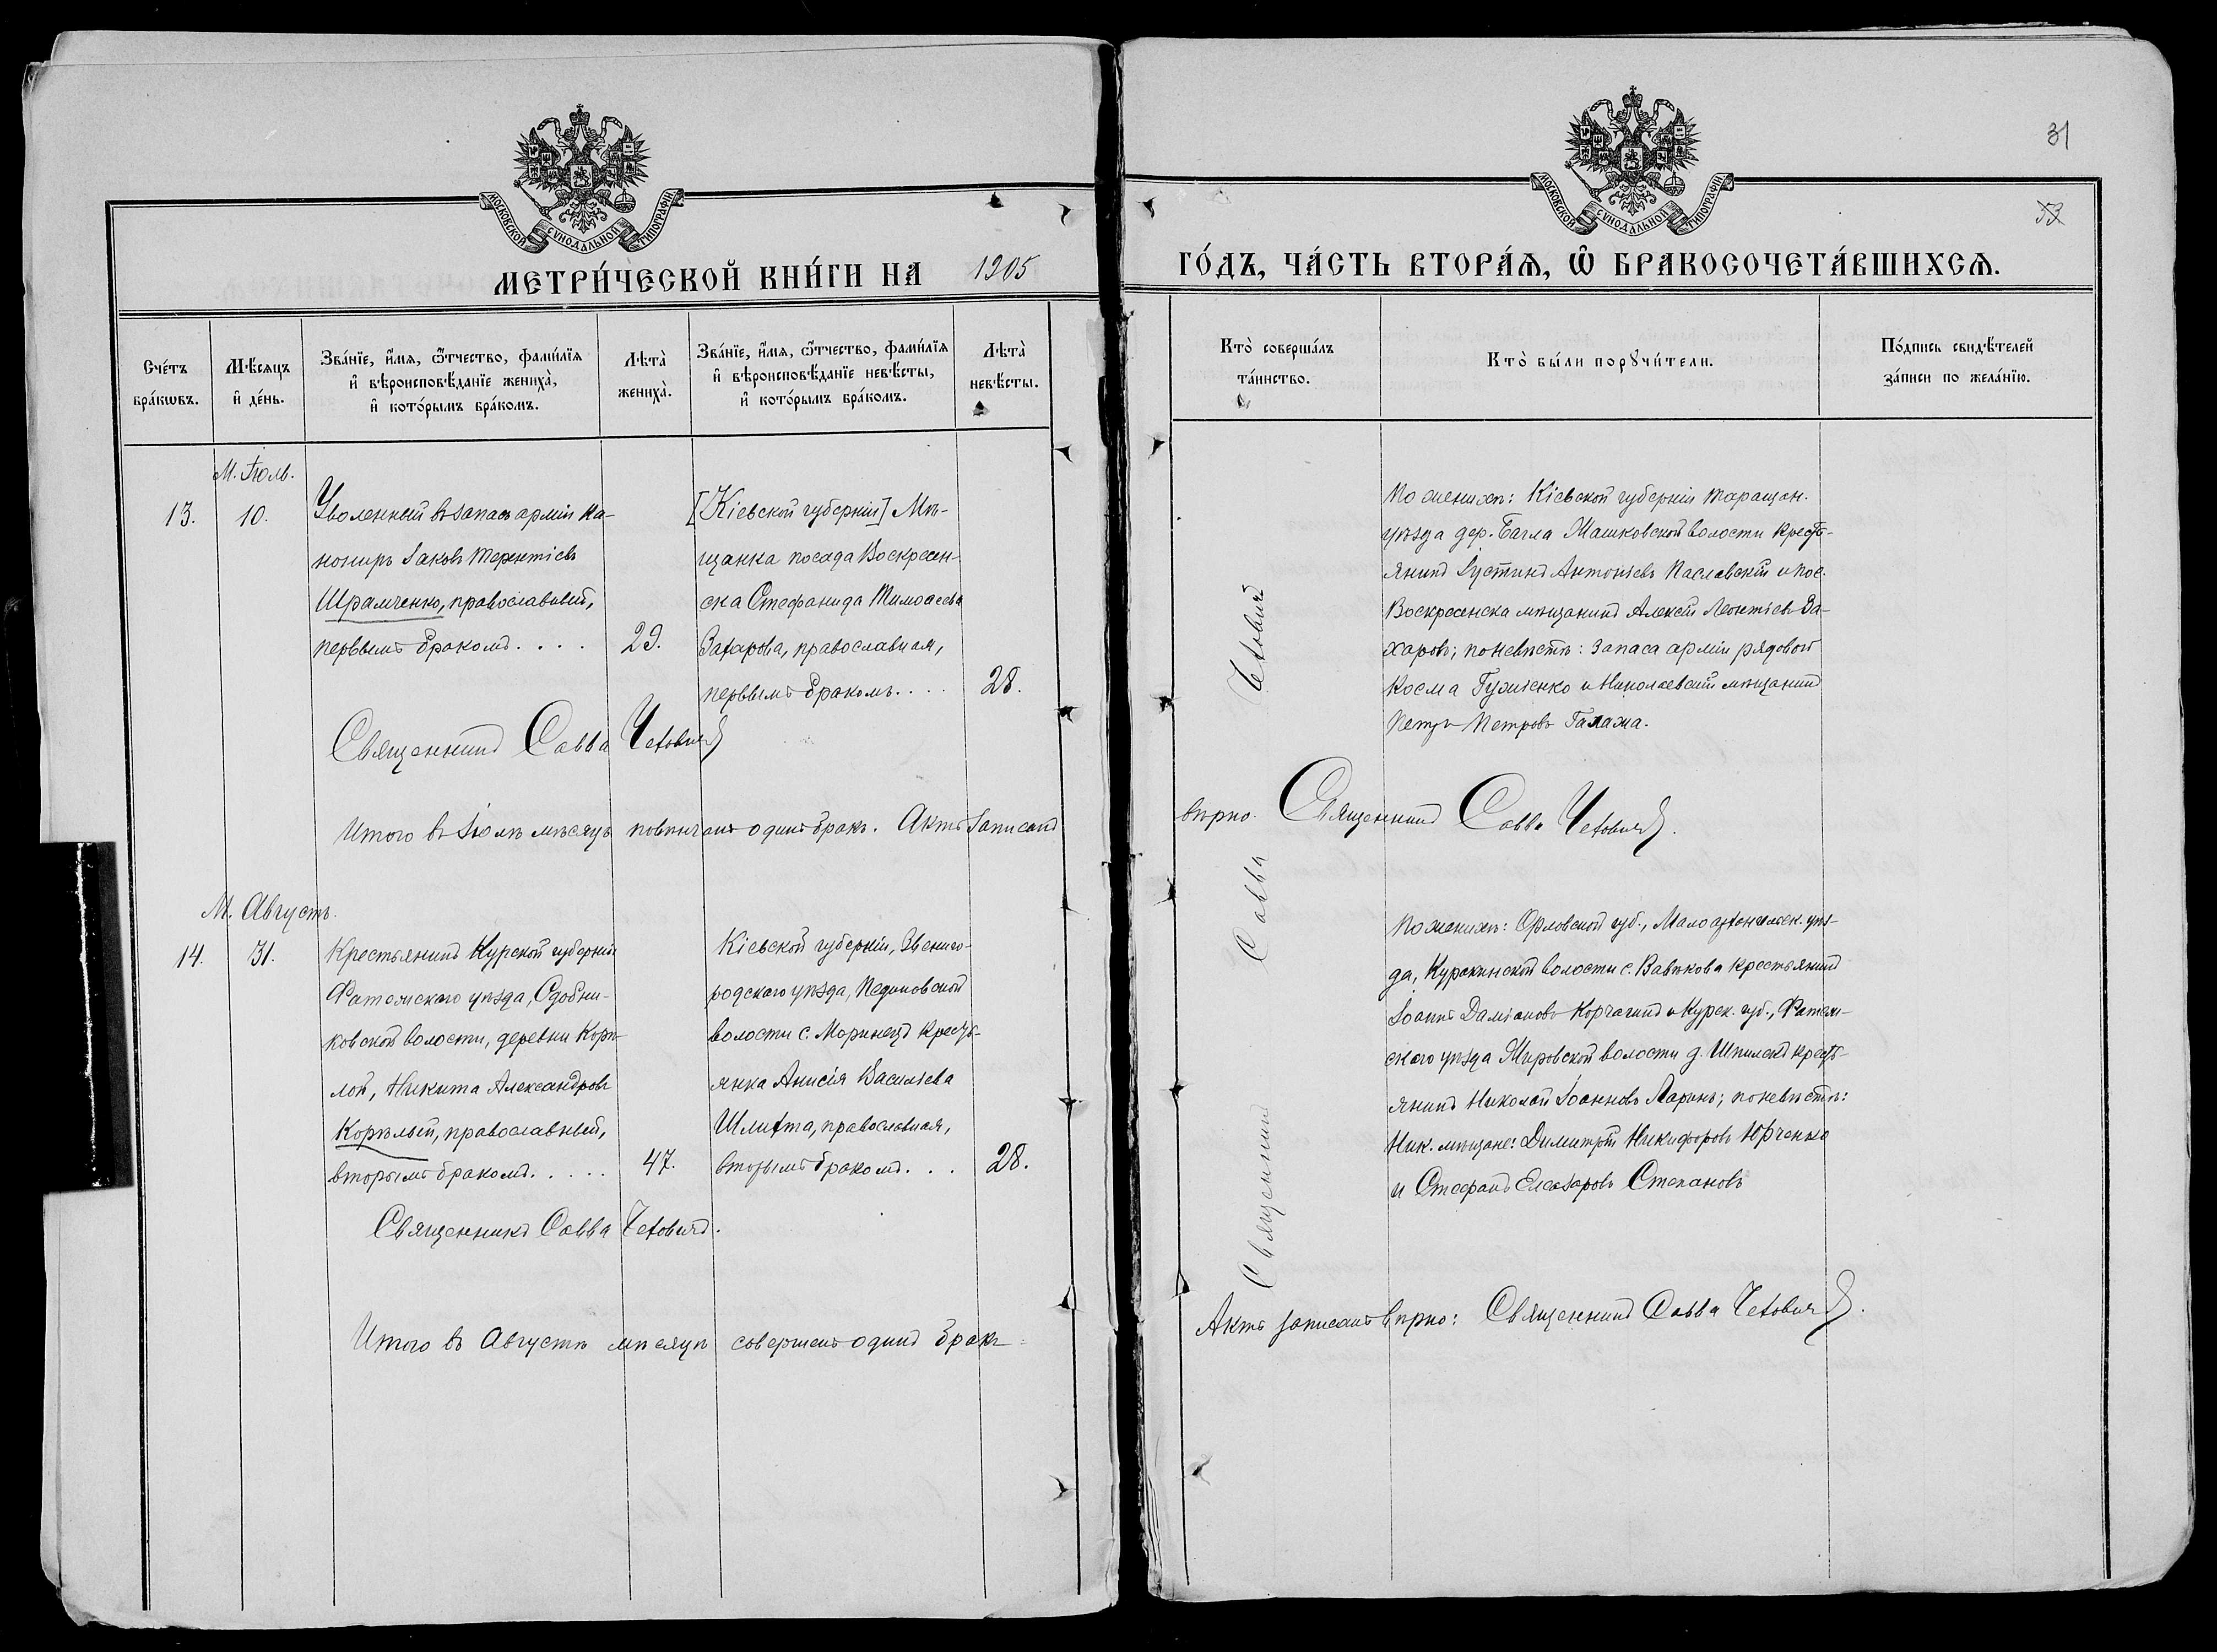 МОСКОВСКОЙ СУНОДАЛЬНОЙ ТИПОГРАФІИ
МЕТРИ́ЧЕСКОЙ КНИ́ГИ НА 1905
Сче́тъ бра́кѡвъ.
Мѣ́сяцъ и҆ де́нь.
Зва́нїе, и҆́мя, ѻ҆́тчество, фами́лїя
и҆ вѣроисповѣ́данїе жениха̀,
и҆ кото́рымъ бра́комъ.
Лѣта̀ жениха̀.
Зва́нїе, и҆́мя, ѻ҆́тчество, фами́лїя
и҆ вѣроисповѣ́данїе невѣ́сты,
и҆ кото́рымъ бра́комъ.
Лѣта̀ невѣ́сты.
М. Іюль.
13. 10.
Уволенный въ запасъ арміи ка-
ониръ Іаковъ Терентіевъ
Шрамченко, православный,
первымъ бракомъ. . . . 29.
[Кіевской губерніи] Мѣ-
щанка посада Воскресен-
ска Стефанида Тимоѳеева
Захарова, православная,
первымъ бракомъ. . . . 28.
Священникъ Савва Чехович
Итого въ Іюлѣ мѣсяцѣ повѣнчанъ одинъ бракъ. Актъ записанъ
М. Августъ.
14. 31.
Крестьянинъ Курской губерніи
Фатежскаго уѣзда, Сдобни-
ковской волости, деревни Корѣ-
лой, Никита Александровъ
Корѣлый, православный,
вторымъ бракомъ. . . . . 47.
Кіевской губерніи, Звениго-
родскаго уѣзда, Пединовской
волости с. Моринецъ кресть-
янка Анисія Васильева
Шлихта, православная,
вторымъ бракомъ. . . 28.
Священникъ Савва Чеховичъ.
Итого въ Августѣ мѣсяцѣ совершенъ одинъ бракъ
31
53
МОСКОВСКОЙ СУНОДАЛЬНОЙ ТИПОГРАФІИ
ГО́ДЪ, ЧА́СТЬ ВТОРА́Я, Ѡ҆ БРАКОСОЧЕТА́ВШИХСЯ.
Кто̀ соверша́лъ
та́инство.
Кто̀ бы́ли порꙋчи́тели.
По́дпись свидѣ́телей
за́писи по жела́нїю.
По женихѣ: Кіевской губерніи Таращан.
уѣзда дер. Багла Машковской волости кресть-
янинъ Іустинъ Антоніевъ Паславскій и пос.
Воскресенска мѣщанинъ Алексѣй Леонтіевъ За-
харовъ; по невѣстѣ: запаса арміи рядовой
Косма Гужненко и Николаевскій мѣщанинъ
Петръ Петровъ Галажа.
вѣрно. Священникъ Савва Чехович.
Священникъ Савва Чеховичъ
По женихѣ: Орловской губ., Малоархангельск. уѣз-
да, Куракинской волости с. Вавикова крестьянинъ
Іоаннъ Даміановъ Корчагинъ и Курск. губ., Фатеж-
скаго уѣзда Мировской волости д. Шпилекъ кресть-
янинъ Николай Іоанновъ Ларинъ; по невѣстѣ:
Ник. мѣщане: Димитрій Никифоровъ Юрченко
и Стефанъ Елеазаровъ Степановъ
Актъ записанъ вѣрно: Священникъ Савва Чехович.